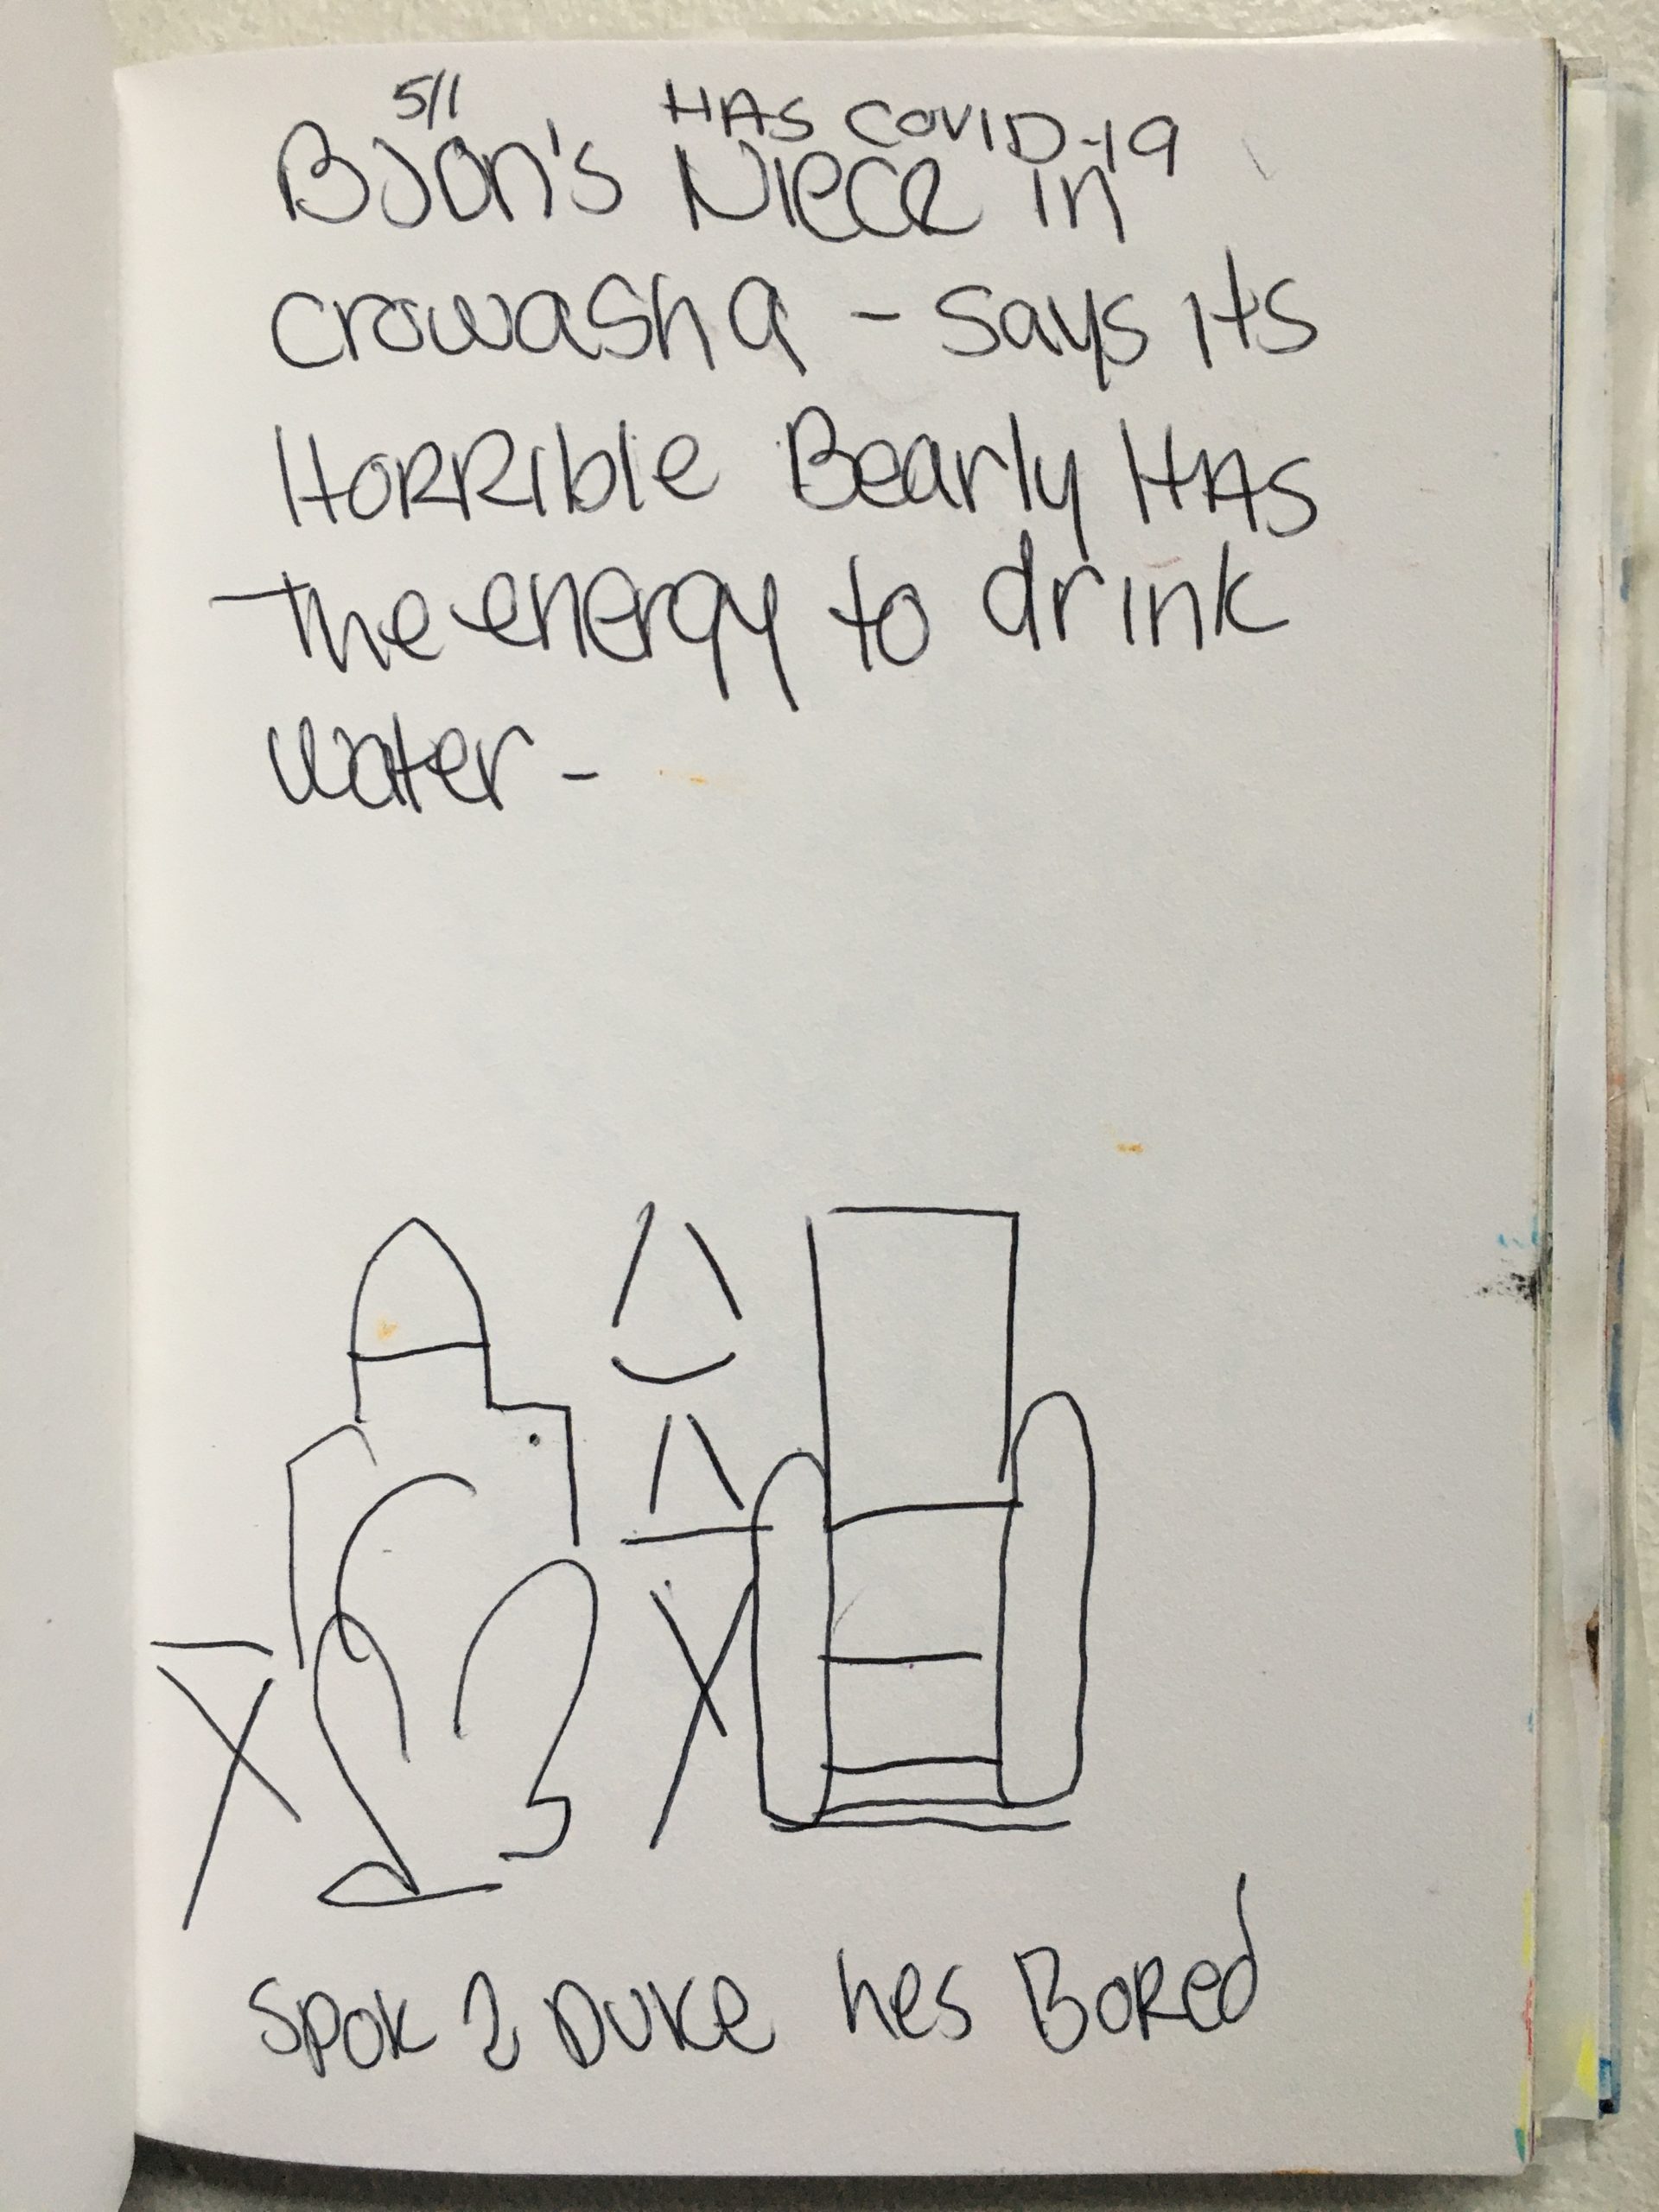 5/1 HAS COVID-19
BJON's Niece in
crowasha - says its
HORRible Bearly HAS
the energy to drink
water -
Spok 2 Duke hes Bored